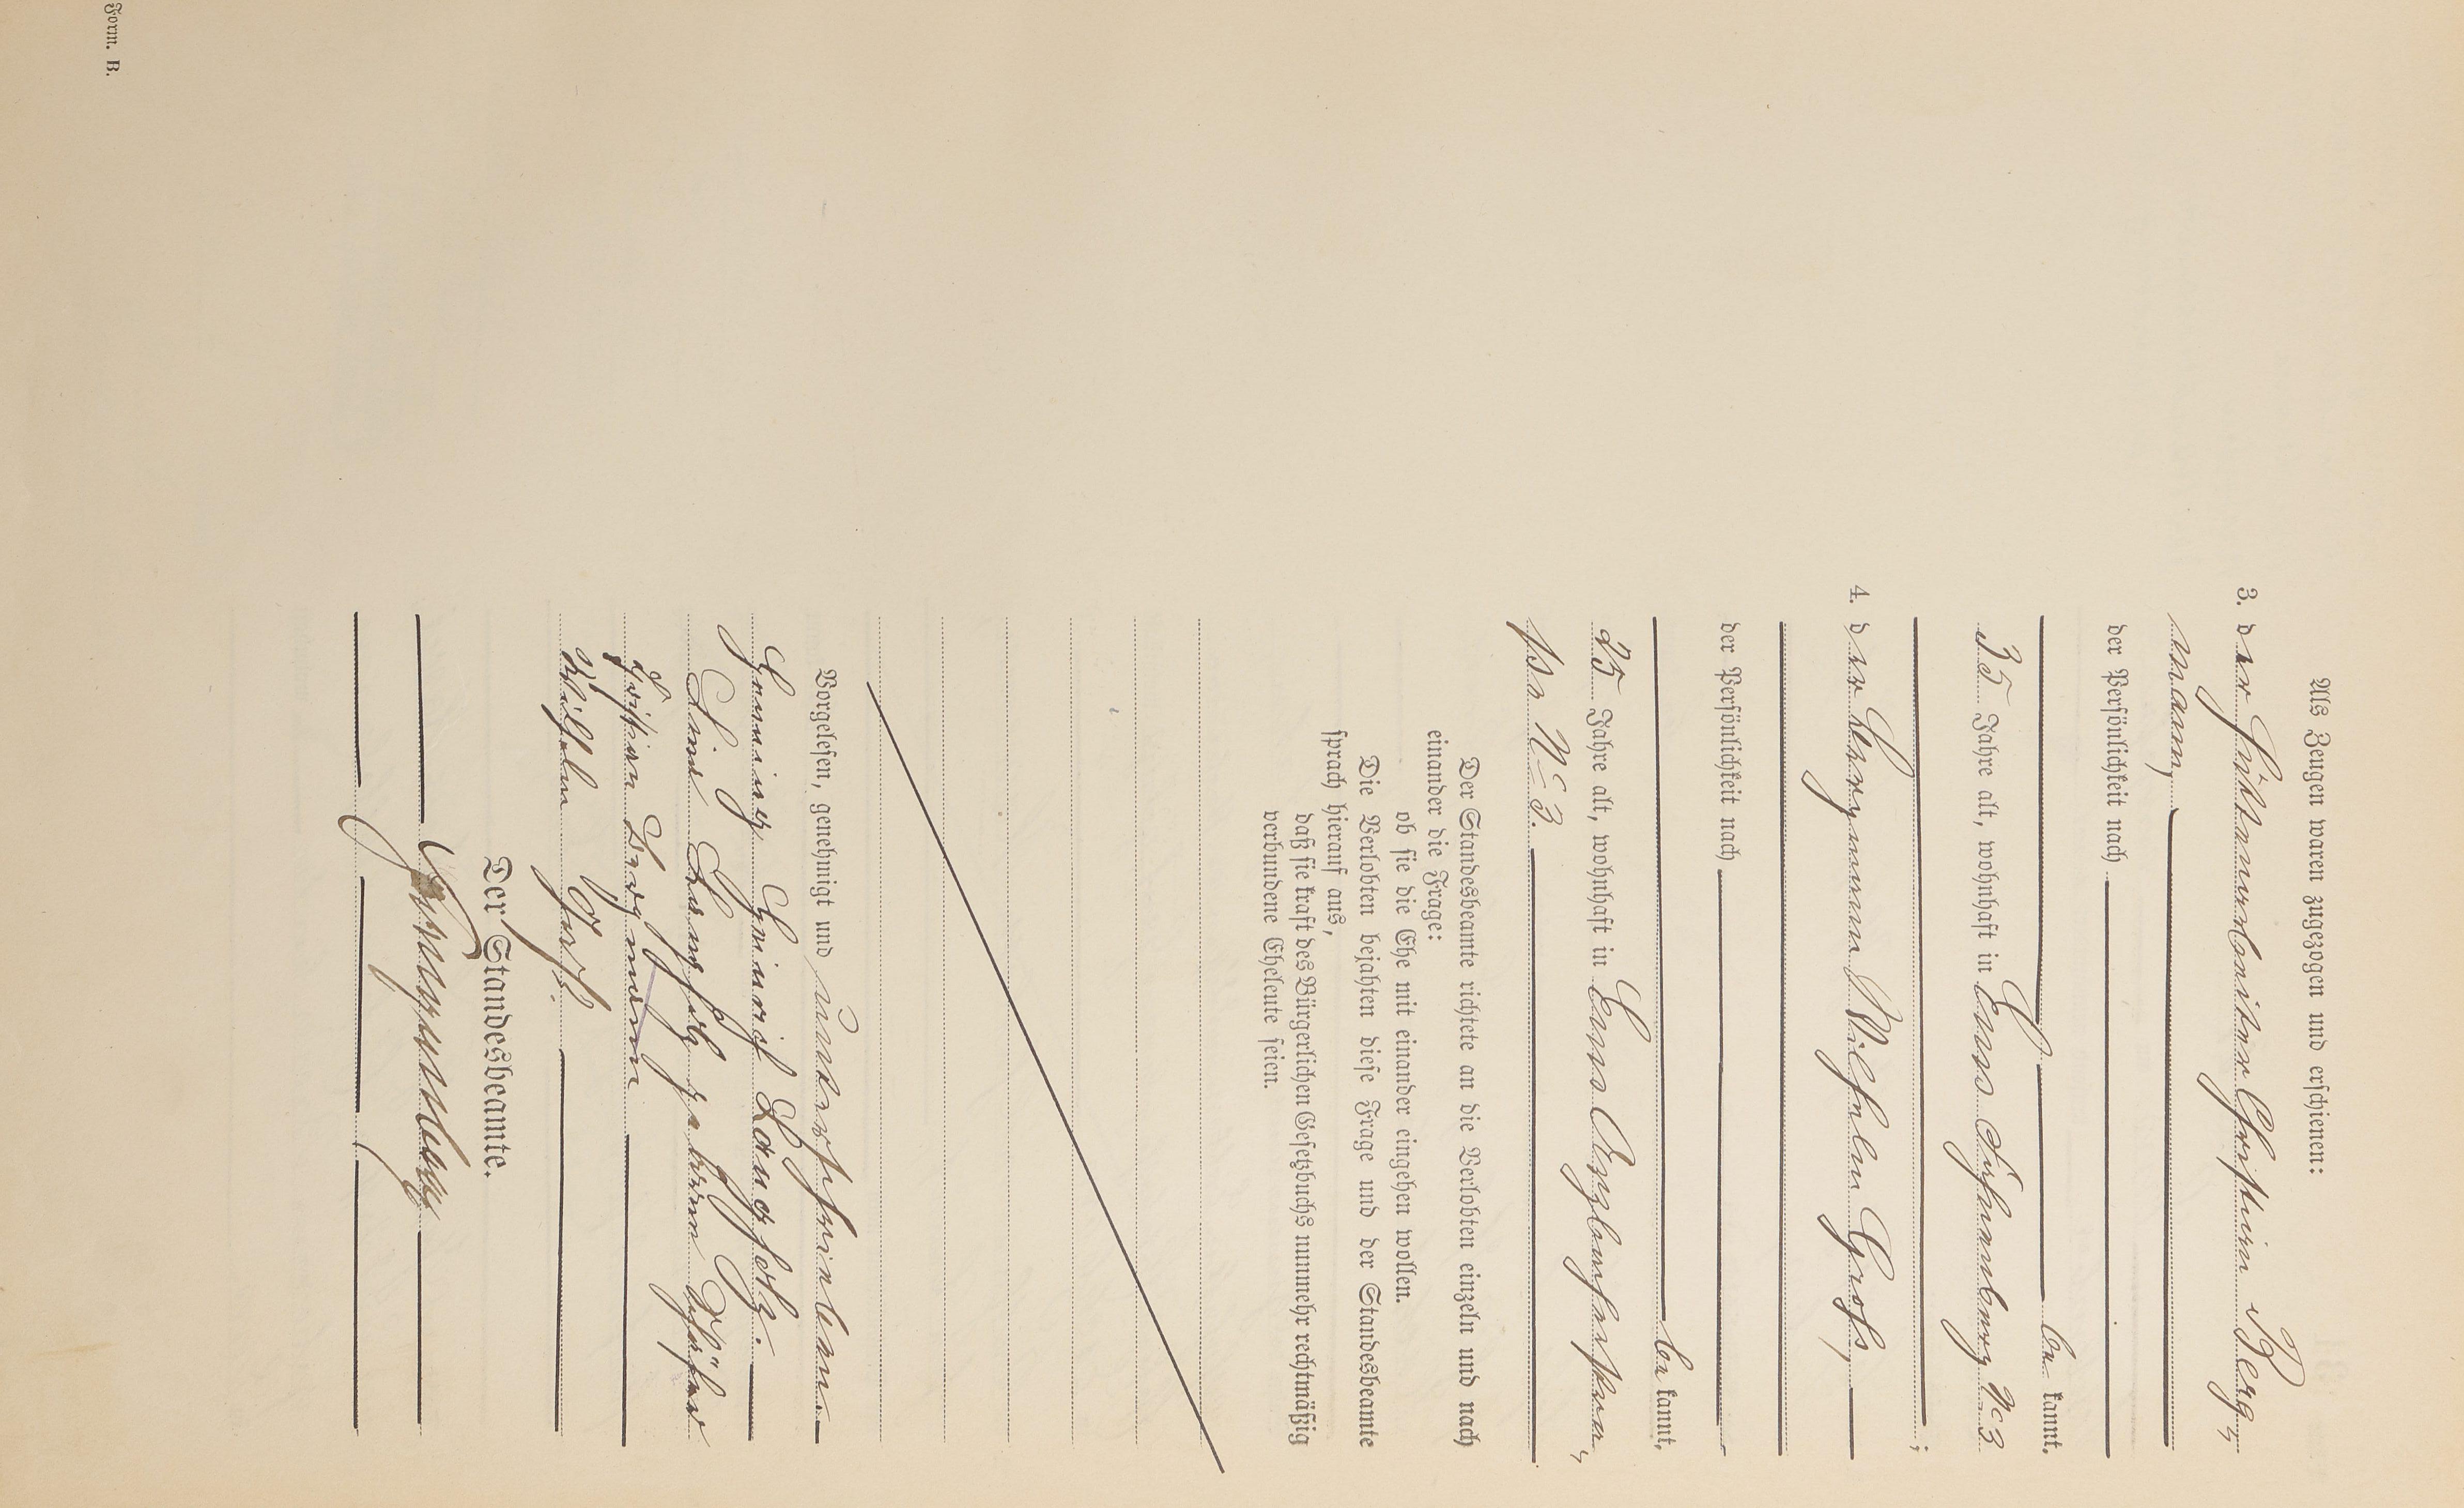 Als Zeugen waren zugezogen und erschienen:
3. der Hüttenarbeiter Christian Berg-
mann,
der Persönlichkeit nach
be kannt,
35 Jahre alt, wohnhaft in Hamm N° 3
;
4. der Bergmann Wilhelm Groß,
der Persönlichkeit nach
be kannt,
25 Jahre alt, wohnhaft in Hamm
N° 3.
Der Standesbeamte richtete an die Verlobten einzeln und nach
einander die Frage:
ob sie die Ehe mit einander eingehen wollen.
Die Verlobten bejahten diese Frage und der Standesbeamte
sprach hierauf aus,
daß sie kraft des Bürgerlichen Gesetzbuchs nunmehr rechtmäßig
verbundene Eheleute seien.
Vorgelesen, genehmigt und unterschrieben.
Heinrich
geborene
Christian Bergmann
Wilhelm Groß.
Der Standesbeamte.
Form. B.